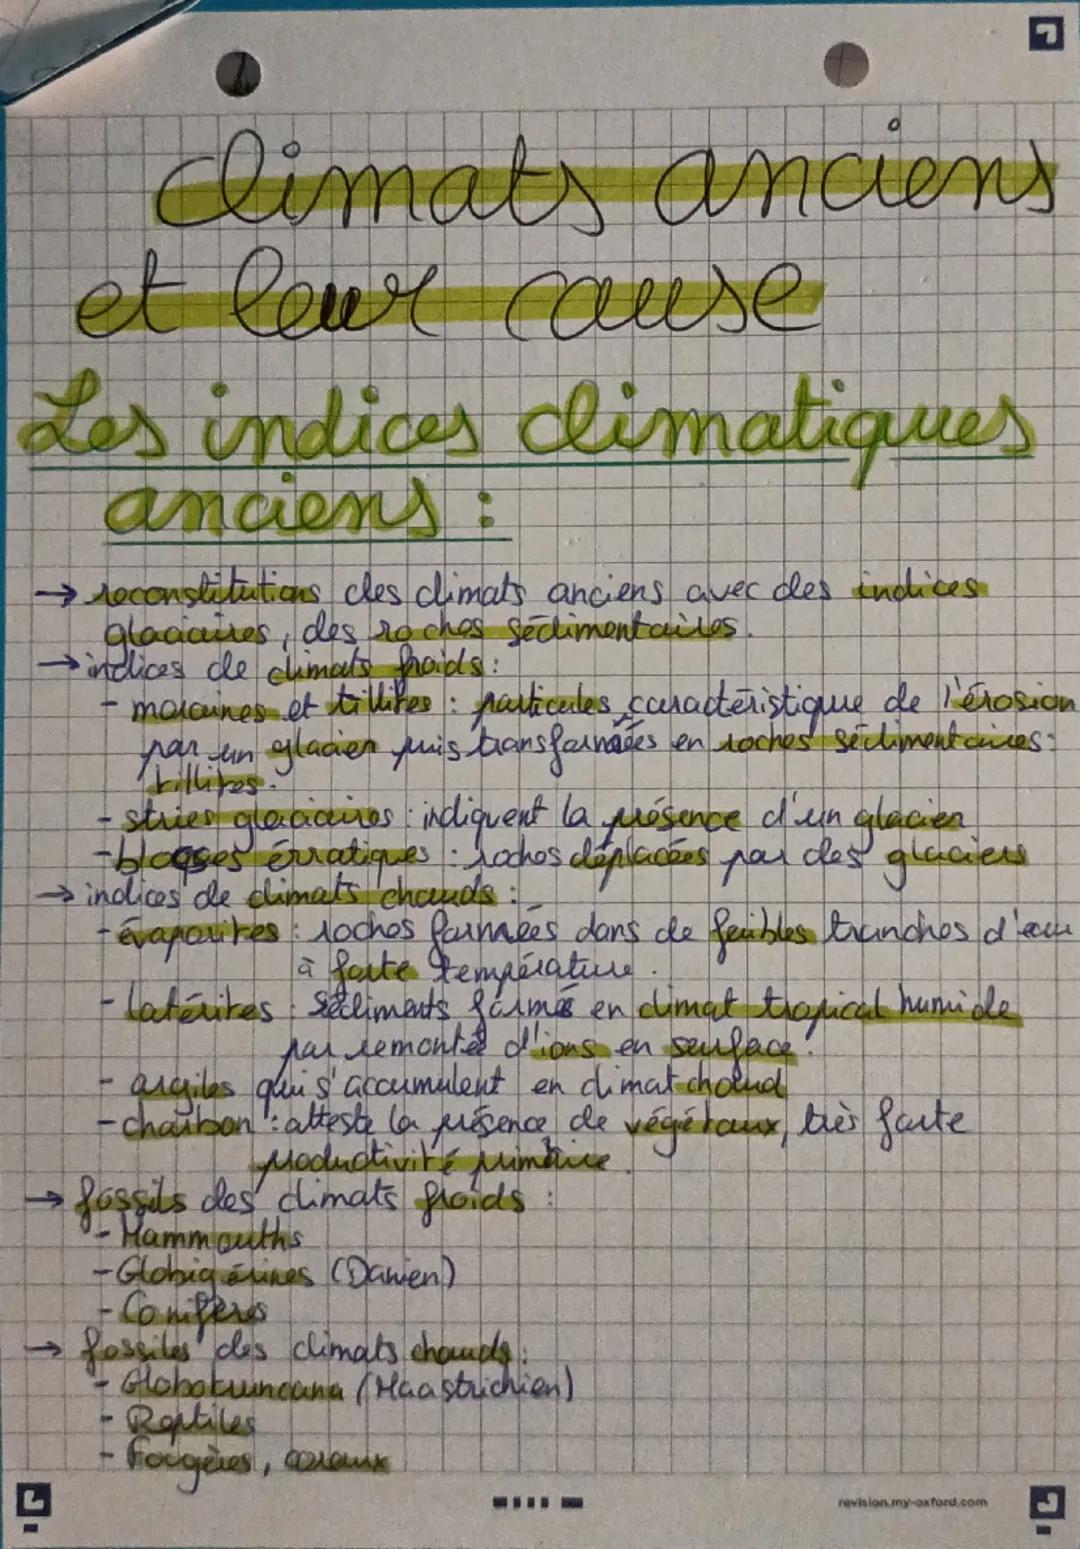 climats anciens
et leur cause
Les indices climatiques
anciens :
→ reconstitutions des climats anciens avec des indices
glaciaires, des roches sédimentaires.
→ indices de climats froids :
- moraines et tillites : particules caractéristique de l'érosion
par un glacier puis transformées en roches sédimentaires :
tillites.
- stries glaciaires : indiquent la présence d'un glacier
- blocs érratiques : roches déplacées par des glaciers
→ indices de climats chauds :
- évaporites : roches formées dans de faibles tranches d'eau
à forte température.
- latérites : sédiments formés en climat tropical humide
par remonté d'ions en surface.
- argiles qui s'accumulent en climat chaud
- charbon : atteste la présence de végétaux, très forte
productivité primaire.
→ fossils des climats froids :
- Mammouths
- Globigérines (Danien)
- Conifères
→ fossiles des climats chauds :
- Globotruncana (Maastrichien)
- Reptiles
- Fougères, coraux
revision.my-oxford.com